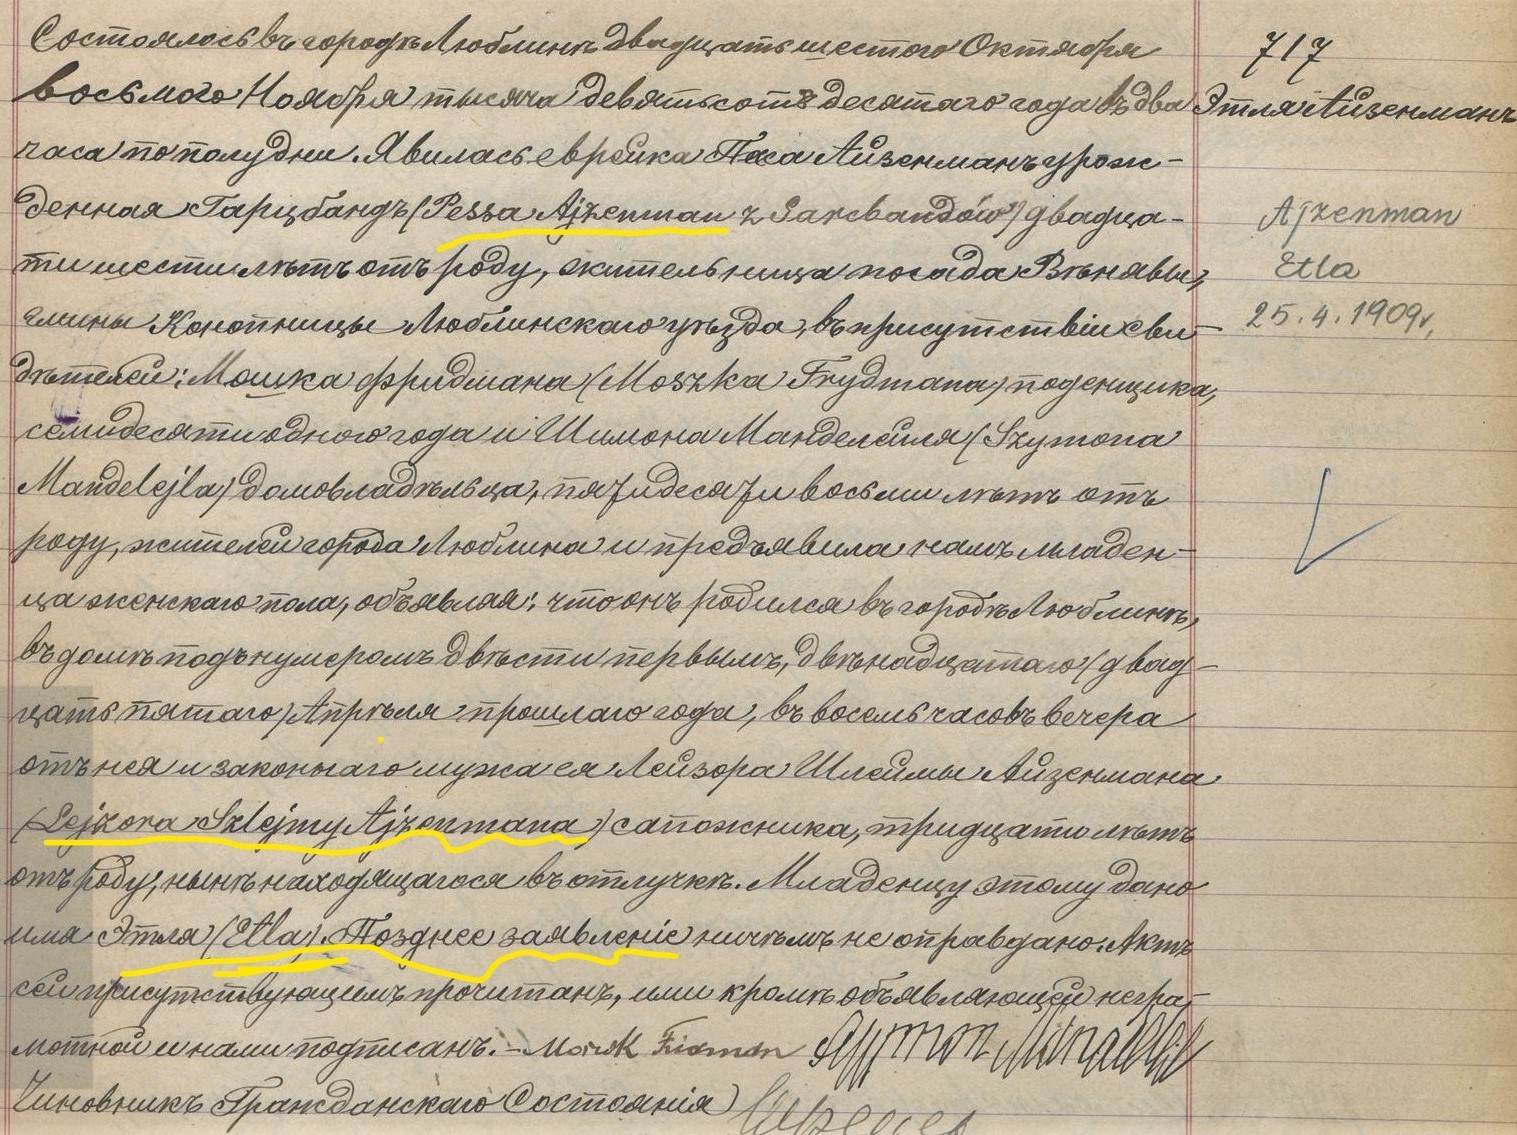 Состоялось въ городѣ Люблинѣ двадцать шестого Октября
восьмого Ноября тысяча девятьсотъ десятаго года въ два
часа по полудни. Явилась еврейка Песа Айзенманъ урож-
денная Гарцбандъ (Pessa Ajzenman z Garcbandów) двадца-
ти шести лѣтъ отъ роду, жительница посада Вѣнявы,
гмины Конопницы Люблинскаго уѣзда, въ присутствіи сви-
дѣтелей: Мошка Фридмана (Moszka Frydmana) поденщика,
семидесяти одного года и Шимона Манделейля (Szymona
Mandelejla) домовладѣльца, пятидесяти восьми лѣтъ отъ
роду, жителей города Люблина и предъявила намъ младен-
ца женскаго пола, объявляя: что онъ родился въ городѣ Люблинѣ,
въ домѣ подъ нумеромъ двѣсти первымъ, двѣнадцатаго (двад-
цать пятаго) Апрѣля прошлаго года, въ восемь часовъ вечера
отъ нея и законнаго мужа ея Лейзора Шлеймы Айзенмана
(Lejzora Szlejmy Ajzenmana) сапожника, тридцати лѣтъ
отъ роду, нынѣ находящагося въ отлучкѣ. Младенцу этому дано
имя Этля (Etla). Позднее заявленіе ничѣмъ не оправдано. Актъ
сей присутствующимъ прочитанъ, ими кромѣ объявляющей негра-
мотной и нами подписанъ. -
Чиновникъ Гражданскаго Состоянія
717
Этля Айзенманъ
Ajzenman
Etla
25.4.1909r.